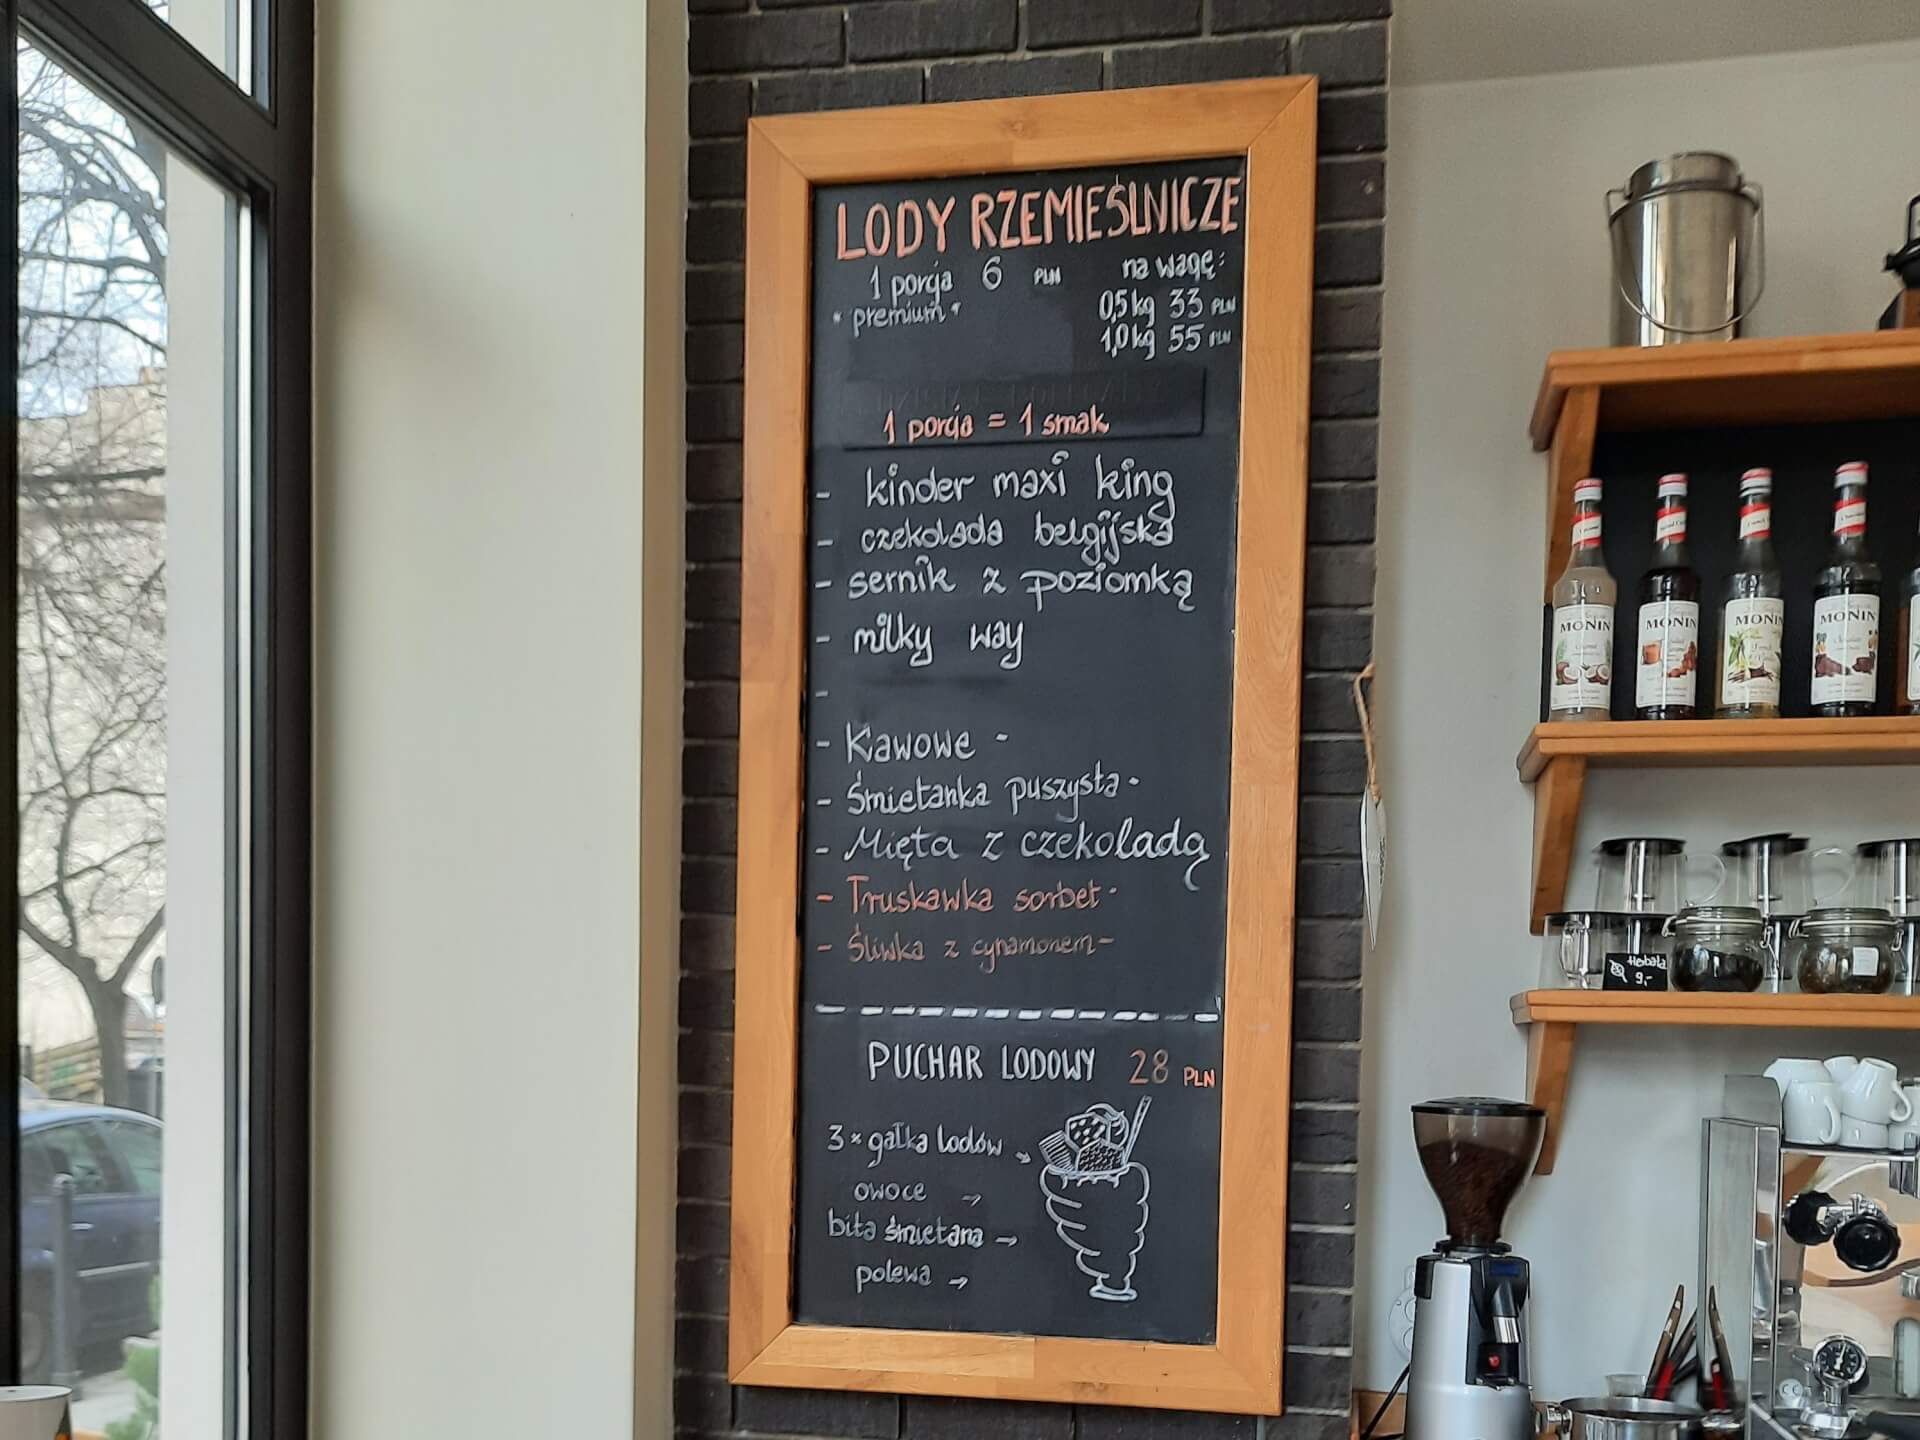 LODY RZEMIEŚLNICZE
1 porcja 6 PLN
"premium"
na wagę:
0,5 kg 33 PLN
1,0 kg 55 PLN
1 porcja = 1 smak
- kinder maxi king
- czekolada belgijska
- sernik z poziomką
- milky way
-
- Kawowe -
- Śmietanka puszysta -
- Mięta z czekoladą
- Truskawka sorbet -
- Śliwka z cynamonem -
PUCHAR LODOWY 28 PLN
3 x gałka lodów →
owoce →
bita śmietana →
polewa →
MONIN
MONIN
MONIN
MONIN
Herbata
9,-